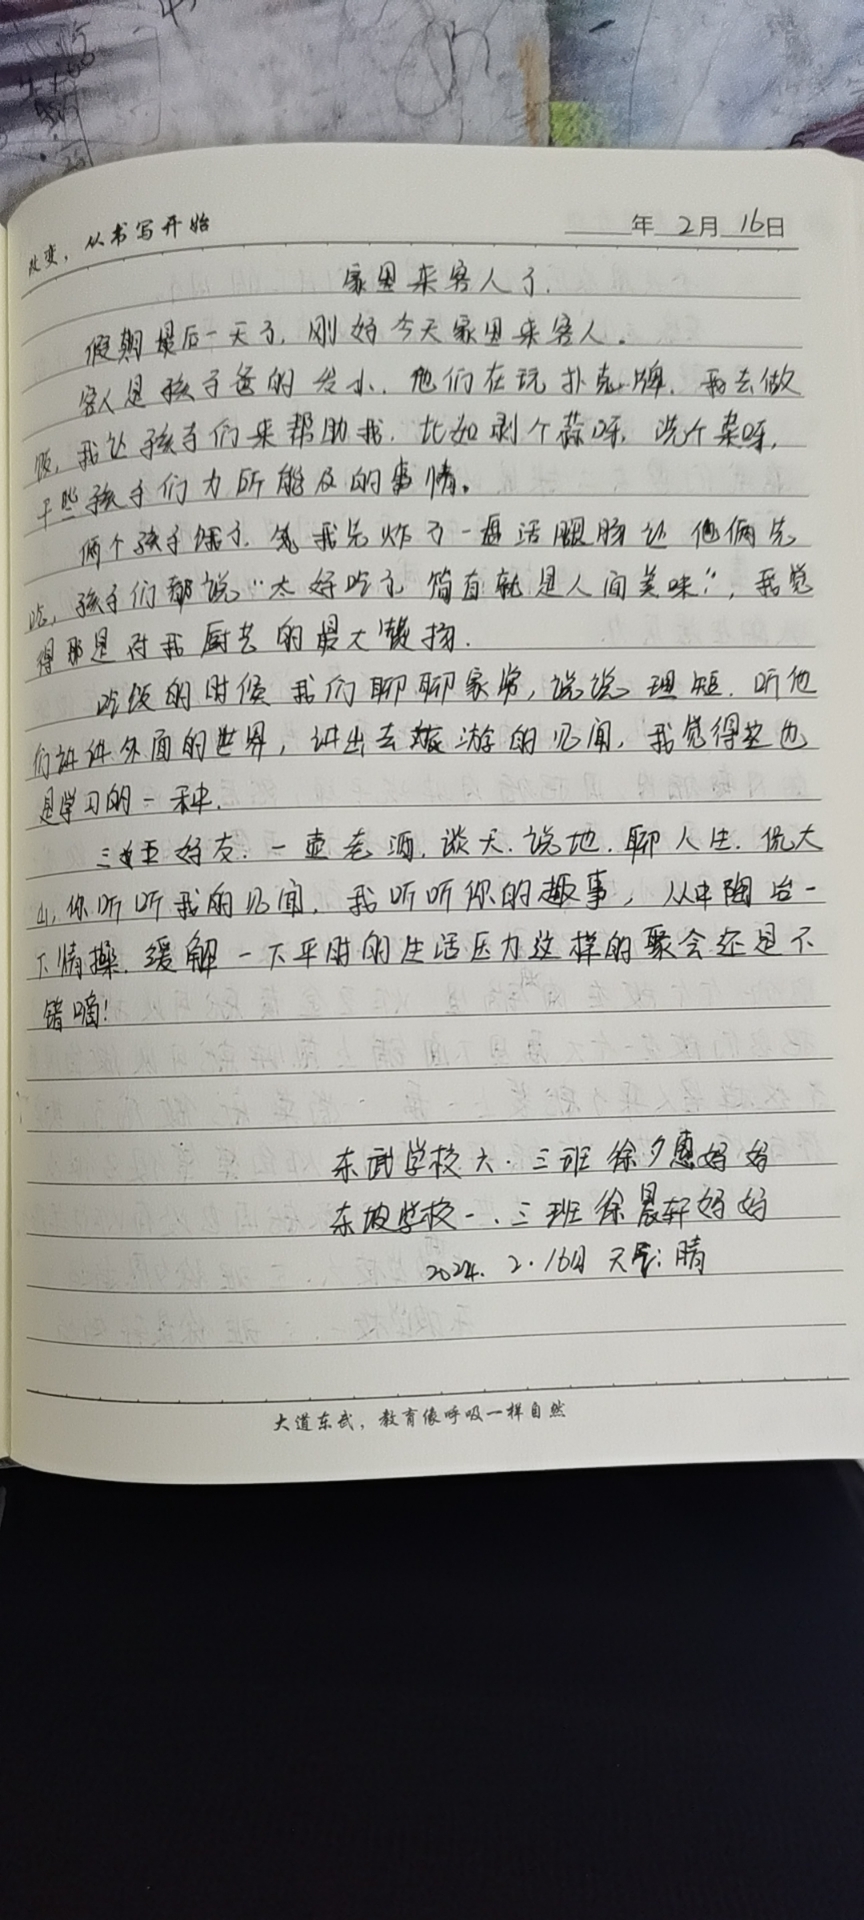 改变，从书写开始
年 2月 16日
家里来客人了.
假期最后一天了，刚好今天家里来客人。
客人是孩子爸的发小，他们在玩扑克牌，我去做
饭，我让孩子们来帮助我，比如剥个蒜呀，洗个菜呀，
干些孩子们力所能及的事情。
俩个孩子饿了，我先炸了一盘活腿肠让他俩先
吃，孩子们都说“太好吃了，简直就是人间美味”，我觉
得那是对我厨艺的最大赞扬.
吃饭的时候我们聊聊家常，说说理短，听他
们讲讲外面的世界，讲出去旅游的见闻，我觉得这也
是学习的一种.
三五好友，一壶老酒，谈天，说地，聊人生，侃大
山，你听听我的见闻，我听听你的趣事，从中陶冶一
下情操，缓解一下平时的生活压力这样的聚会还是不
错嘀！
东武学校六.三班徐夕惠妈妈
东坡学校一.三班徐晨轩妈妈
2024. 2.16日 天气：晴
大道东武，教育像呼吸一样自然